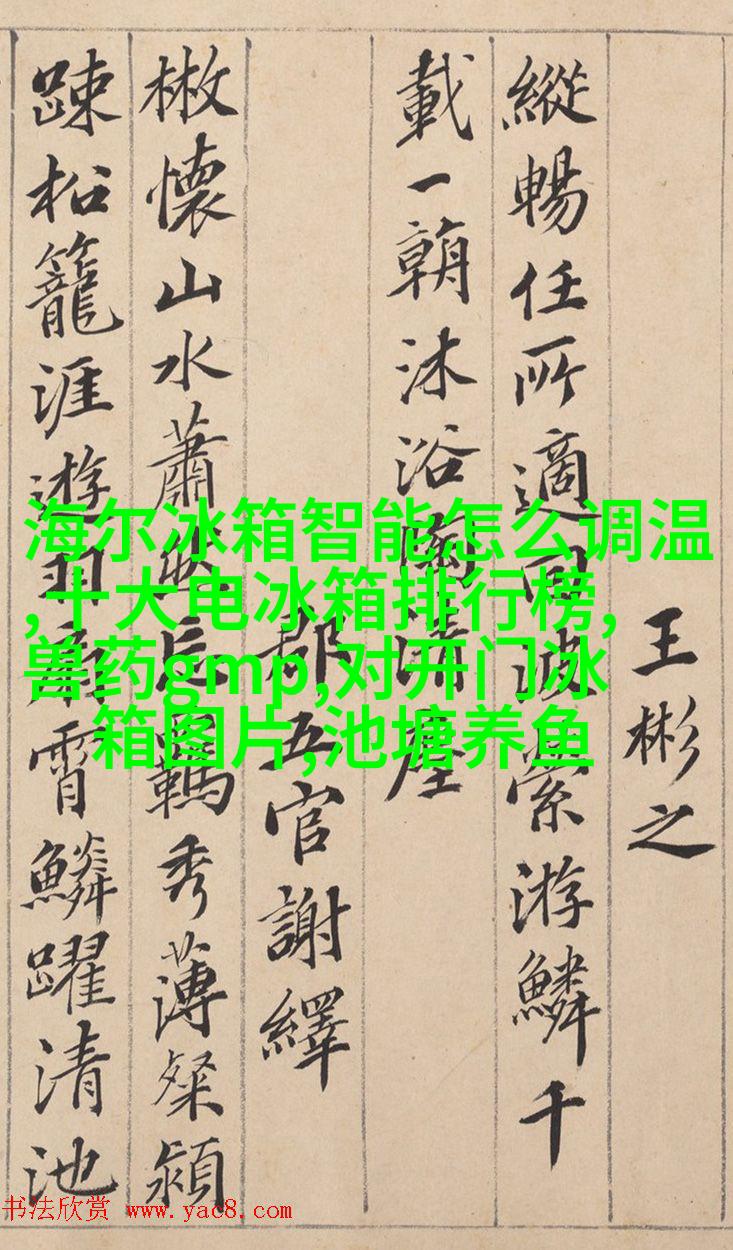 王彬之
縱暢任所適回波縈游鱗千
載一朝沐浴陶清塵
郡五官謝繹
散懷山水蕭然忘羈秀薄粲穎
踈松籠涯遊羽扇霄鱗躍清池
海尔冰箱智能怎么调温
,十大电冰箱排行榜,
兽药gmp,对开门冰
箱图片,池塘养鱼
书法欣赏 www.yac8.com